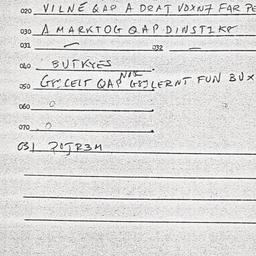 020 VILNÉ QAP A DRAT VOXN7 FAR PE
030 A MARKTOG QAP DINSTIK8
031 — 032 —
040 BUTKYES
050 CELT QAP FUN BUX
060 O
070 O
031 POJR3M